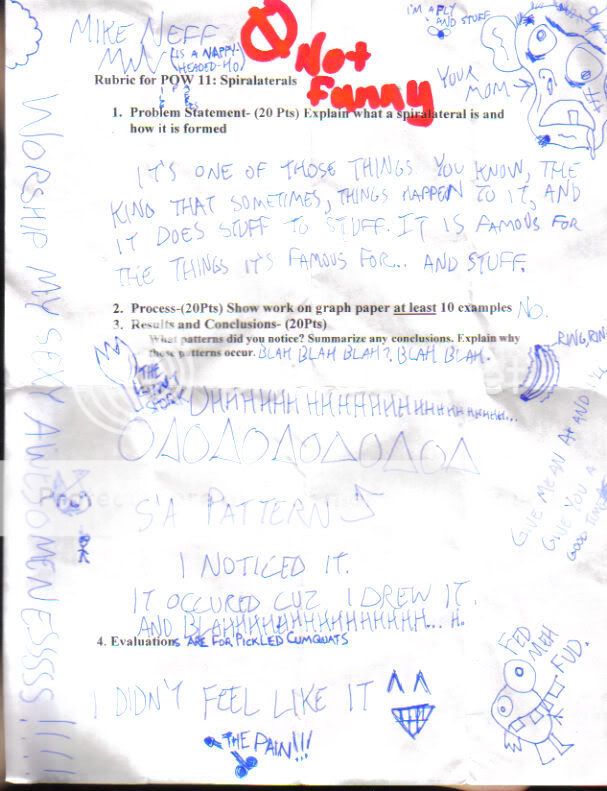 MIKE NEFF
(IS A NAPPY-
HEADED-HO)
Not
Funny
I'M A FLY
AND STUFF
YOUR
MOM
Rubric for POW 11: Spiralaterals
1. Problem Statement- (20 Pts) Explain what a spiralateral is and
how it is formed
IT'S ONE OF THOSE THINGS YOU KNOW, THE
KIND THAT SOMETIMES, THINGS HAPPEN TO IT, AND
IT DOES STUFF TO STUFF. IT IS FAMOUS FOR
THE THINGS IT'S FAMOUS FOR... AND STUFF.
2. Process-(20Pts) Show work on graph paper at least 10 examples No.
3. Results and Conclusions- (20Pts)
What patterns did you notice? Summarize any conclusions. Explain why
these patterns occur. BLAH BLAH BLAH?. BLAH. BLAH.
RING, RING
THE
S'A PATTERN
I NOTICED IT.
IT OCCURED CUZ I DREW IT.
4. Evaluations ARE FOR PICKLED CUMQUATS
I DIDN'T FEEL LIKE IT
THE PAIN!!!
GIVE ME AN A+ AND
GIVE YOU A
GOOD TIME
FED
MEH
FUD.
WORSHIP MY SEXY AWESOMENESSSSS!!!!!